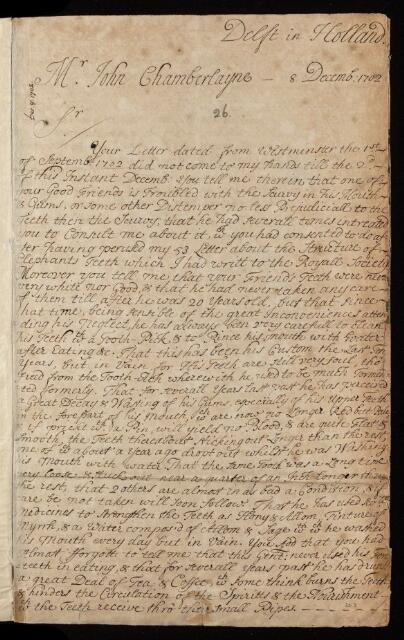 Delft in Holland.
Mr. John Chamberlayne — 8 Decemb. 1702
Dec 8 1702
26.
Sr
Your Letter dated from Westminster the 1st
of Septemb. 1702 did not come to my hands till the 2d
of this Instant Decemb. You tell me therein, that one of
your Good Friends is Troubled with the Scurvy in his Mouth
& Gums, or some other Distemper no less Prejudiciall to the
Teeth then the Scurvy, that he had severall times intreated
you to Consult me about it, wch you had consented to
after having perused my 53 Letter about the Structure of
Elephants Teeth which I had writt to the Royall Society
Moreover you tell me that your Friends Teeth were never
very white nor Good, & that he had never taken any care
of them till after he was 20 years old, but that since
that time, being sensible of the great Inconveniences atten
ding his Neglect, he has always been very carefull to clean
his Teeth wth a Tooth-Pick, & to Rince his mouth with Water
after Eating &c. That this has been his Custom the last
Years, but in Vain for His Teeth are still very foul, tho
freed from the Tooth-Ach wherewith he used to be much Tormen
ted formerly. That for severall Years last past he has perceived
a Great Decay & Wasting of his Gums, especially of his Upper Teeth
in the forepart of his Mouth, wch are now no Longer Red but Pale
if prickt wth a Pin, will yield no Blood, & are quite Flat &
smooth, the Teeth thereabout sticking out Longer than the rest,
one of wch about a Year ago dropt out whilst he was Washing
his Mouth with water. That the same Tooth was a Long time
very Loose & stuck out near a quarter of an Inch Longer than
the rest, that 2 others are almost in as bad a Condition, & if
care be not taken will soon follow. That he has used as
Medicines to Strengthen the Teeth, Hony & Allom, Tincture of
Myrrh, & a Water compos'd of Allom & Sage wth wch he washed
his Mouth every day but in Vain. You said that you had
almost forgott to tell me that this Gent: never used his
teeth in eating, & that for severall Years past he has drunk
a great Deal of Tea & Coffee wch some think burns the Teeth
& hinders the Circulation of the Spirits & the Nourishment
wch the Teeth receive thro their small Pipes